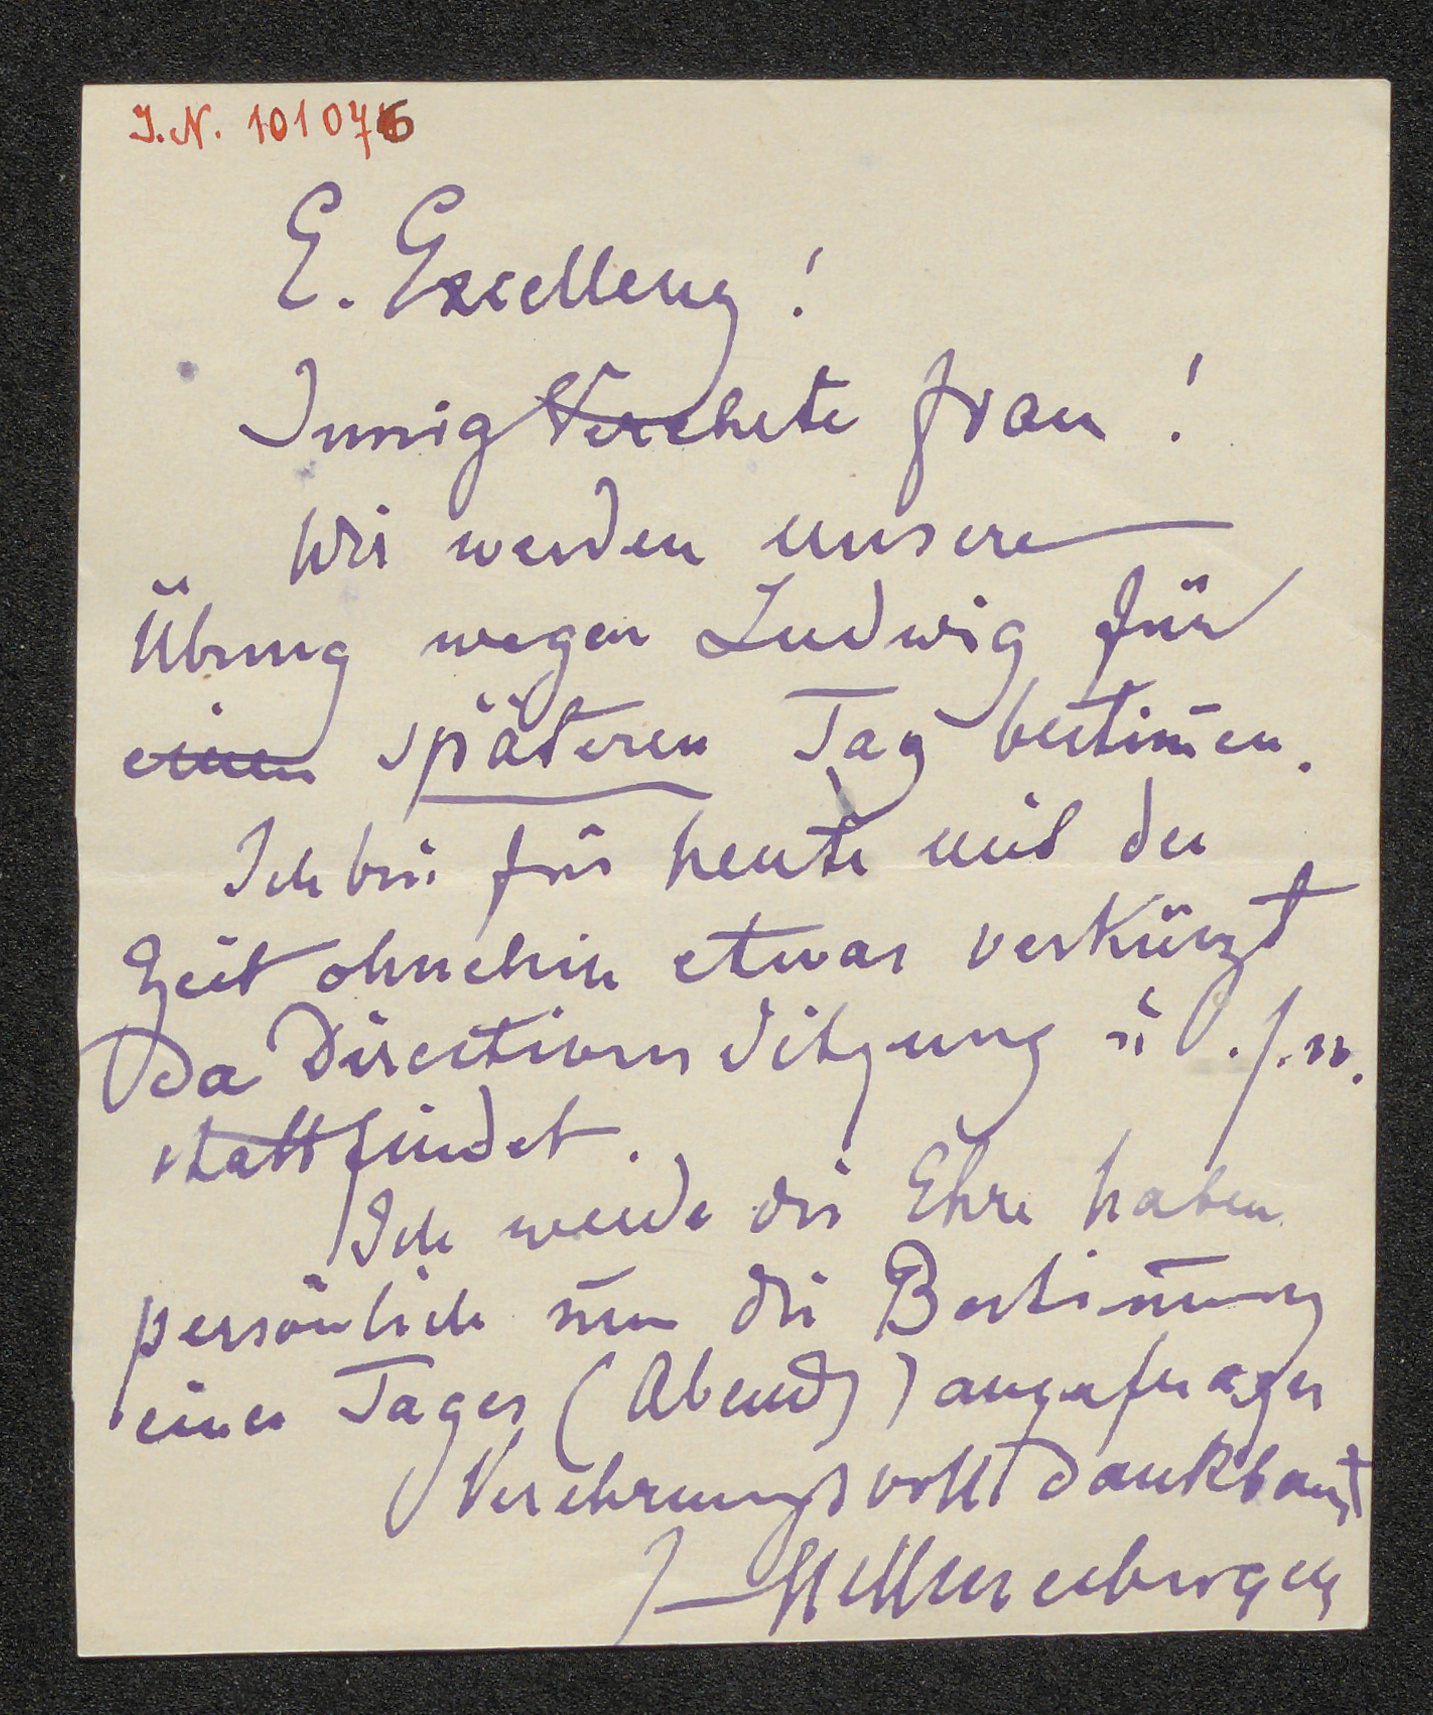 J.N. 101076
E. Excellenz!
Innig Verehrte Frau!
Wir werden unsere
Übung wegen Ludwig für
einen späteren Tag bestim̄en.
Ich bin für heute mit der
Zeit ohnehin etwas verkürzt
da Directions Sitzung u. s. w.
stattfindet.
Ich werde die Ehre haben
persönlich um die Bestim̄ung
eines Tages (Abends) anzufragen
Verehrungsvoll dankbarst
J Hellmesberger